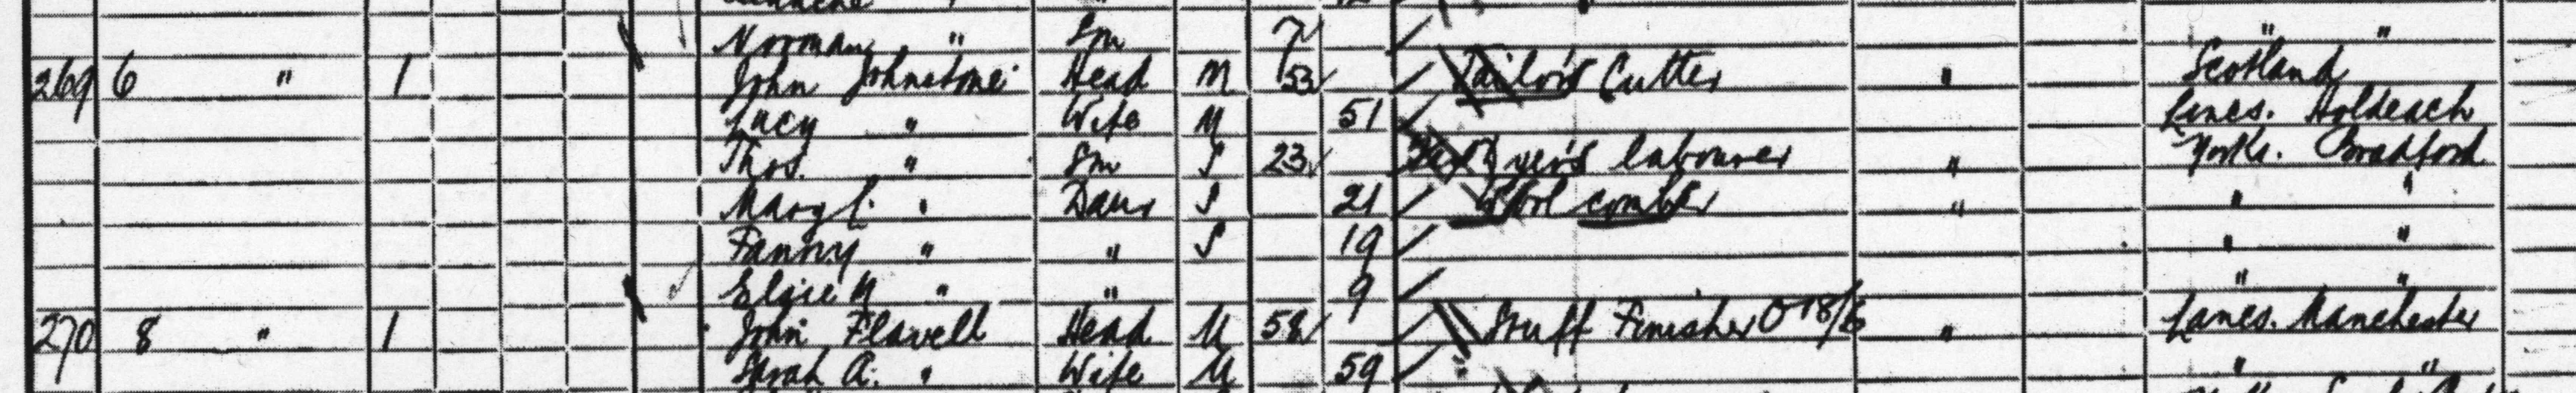 Norman " Son 7
269 6 " 1 John Johnstone Head M 53 Tailor's Cutter " Scotland
Lucy " Wife M 51 Lincs. Holdeach
Thos. " Son S 23 labourer " Yorks. Bradford
Mary E. " Daur S 21 Wool comber " " "
Fanny " " S 19 " "
Elsie M " " 9 " "
270 8 " 1 John Flavell Head M 58 Stuff Finisher " Lancs. Manchester
Sarah A. " Wife M 59 " "